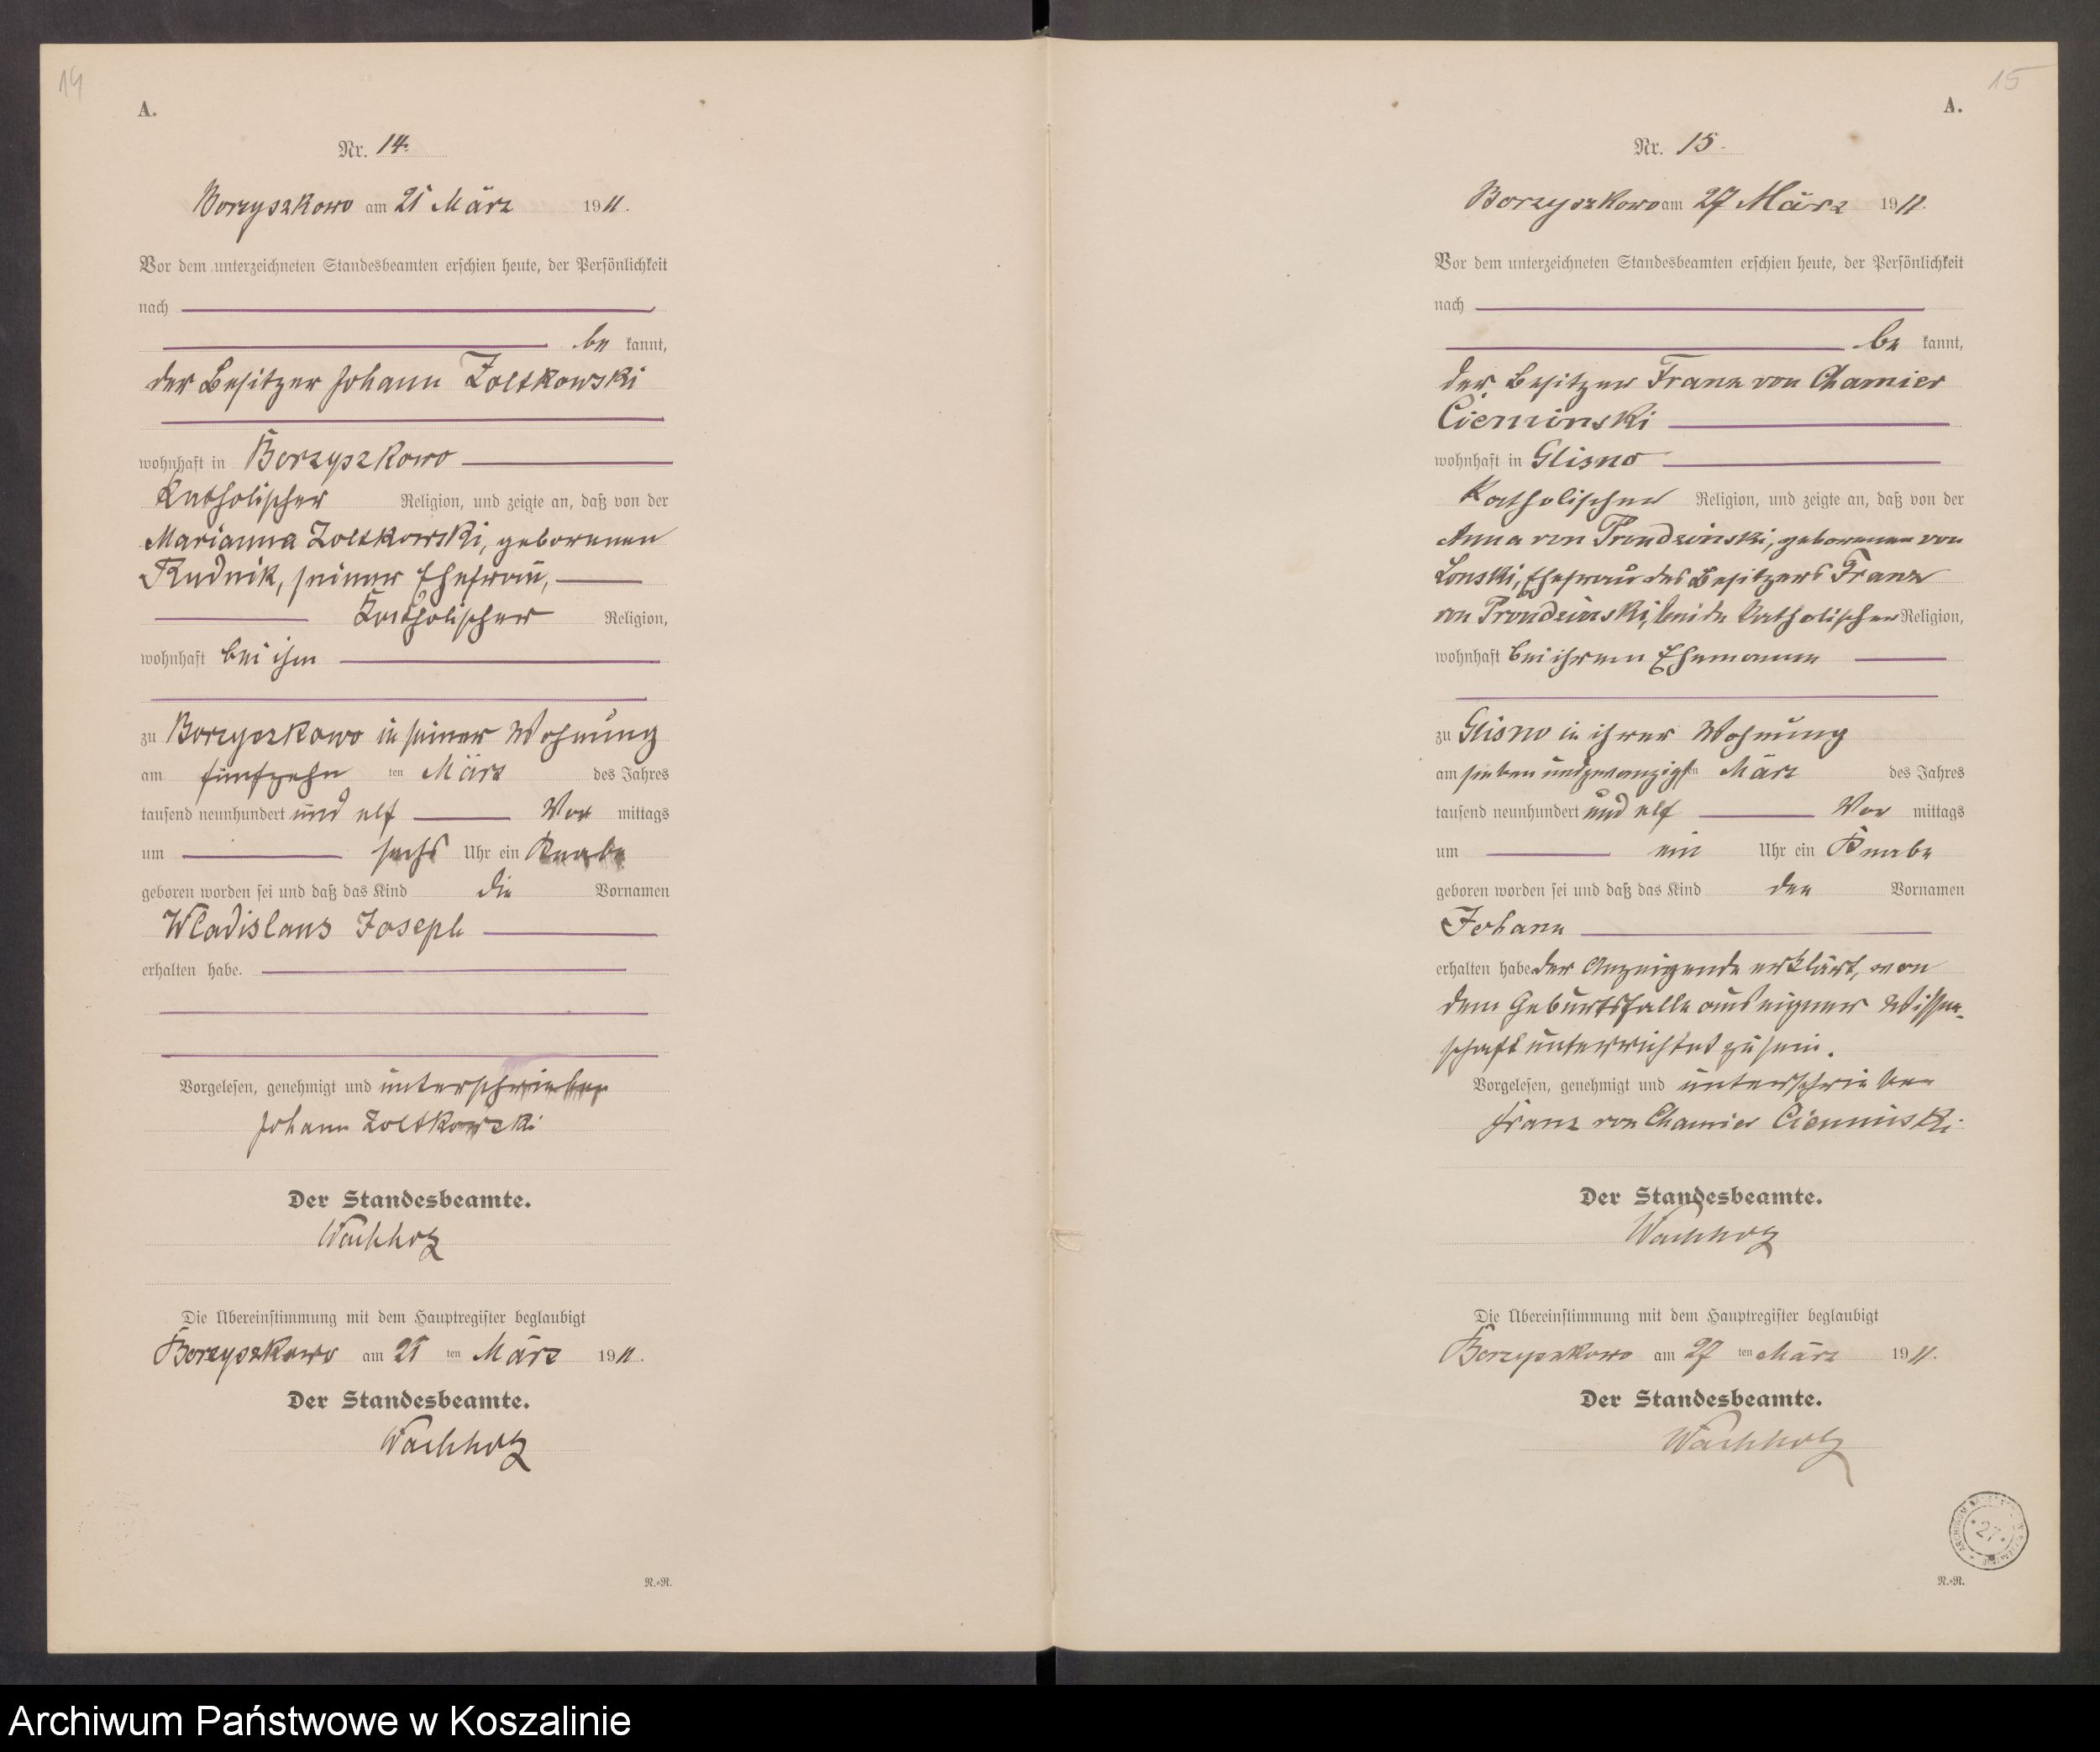 14
A.
Nr. 14.
Borzyszkowo am 21 März 1911.
Vor dem unterzeichneten Standesbeamten erschien heute, der Persönlichkeit
nach
be kannt,
der Besitzer Johann Zoltkowski
wohnhaft in Borzyszkowo
katholischer Religion, und zeigte an, daß von der
Marianna Zoltkowski, geborenen
Rudnik, seiner Ehefrau,
katholischer Religion,
wohnhaft bei ihm
zu Borzyszkowo in seiner Wohnung
am fünfzehn ten März des Jahres
tausend neunhundert und elf Vor mittags
um sechs Uhr ein Knabe
geboren worden sei und daß das Kind die Vornamen
Wladislaus Joseph
erhalten habe.
Vorgelesen, genehmigt und unterschrieben
Johann Zoltkowski
Der Standesbeamte.
Wachholz
Die Übereinstimmung mit dem Hauptregister beglaubigt
Borzyszkowo am 21 ten März 1911.
Der Standesbeamte.
Wachholz
N.=N.
15
A.
Nr. 15.
Borzyszkowo am 27 März 1911.
Vor dem unterzeichneten Standesbeamten erschien heute, der Persönlichkeit
nach
be kannt,
der Besitzer Franz von Chamier
Cieminski
wohnhaft in Glisno
katholischer Religion, und zeigte an, daß von der
Anna von Prondzinski, geborenen von
Lonski, Ehefrau des Besitzers Franz
von Prondzinski, beide katholischer Religion,
wohnhaft bei ihrem Ehemanne
zu Glisno in ihrer Wohnung
am siebenundzwanzigsten März des Jahres
tausend neunhundert und elf Vor mittags
um ein Uhr ein Knabe
geboren worden sei und daß das Kind den Vornamen
Johann
erhalten habe. Der Anzeigende erklärt, von
dem Geburtsfalle aus eigener Wissen-
schaft unterrichtet zu sein.
Vorgelesen, genehmigt und unterschrieben
Franz von Chamier Cieminski
Der Standesbeamte.
Wachholz
Die Übereinstimmung mit dem Hauptregister beglaubigt
Borzyszkowo am 27 ten März 1911.
Der Standesbeamte.
Wachholz
27
N.=N.
Archiwum Państwowe w Koszalinie